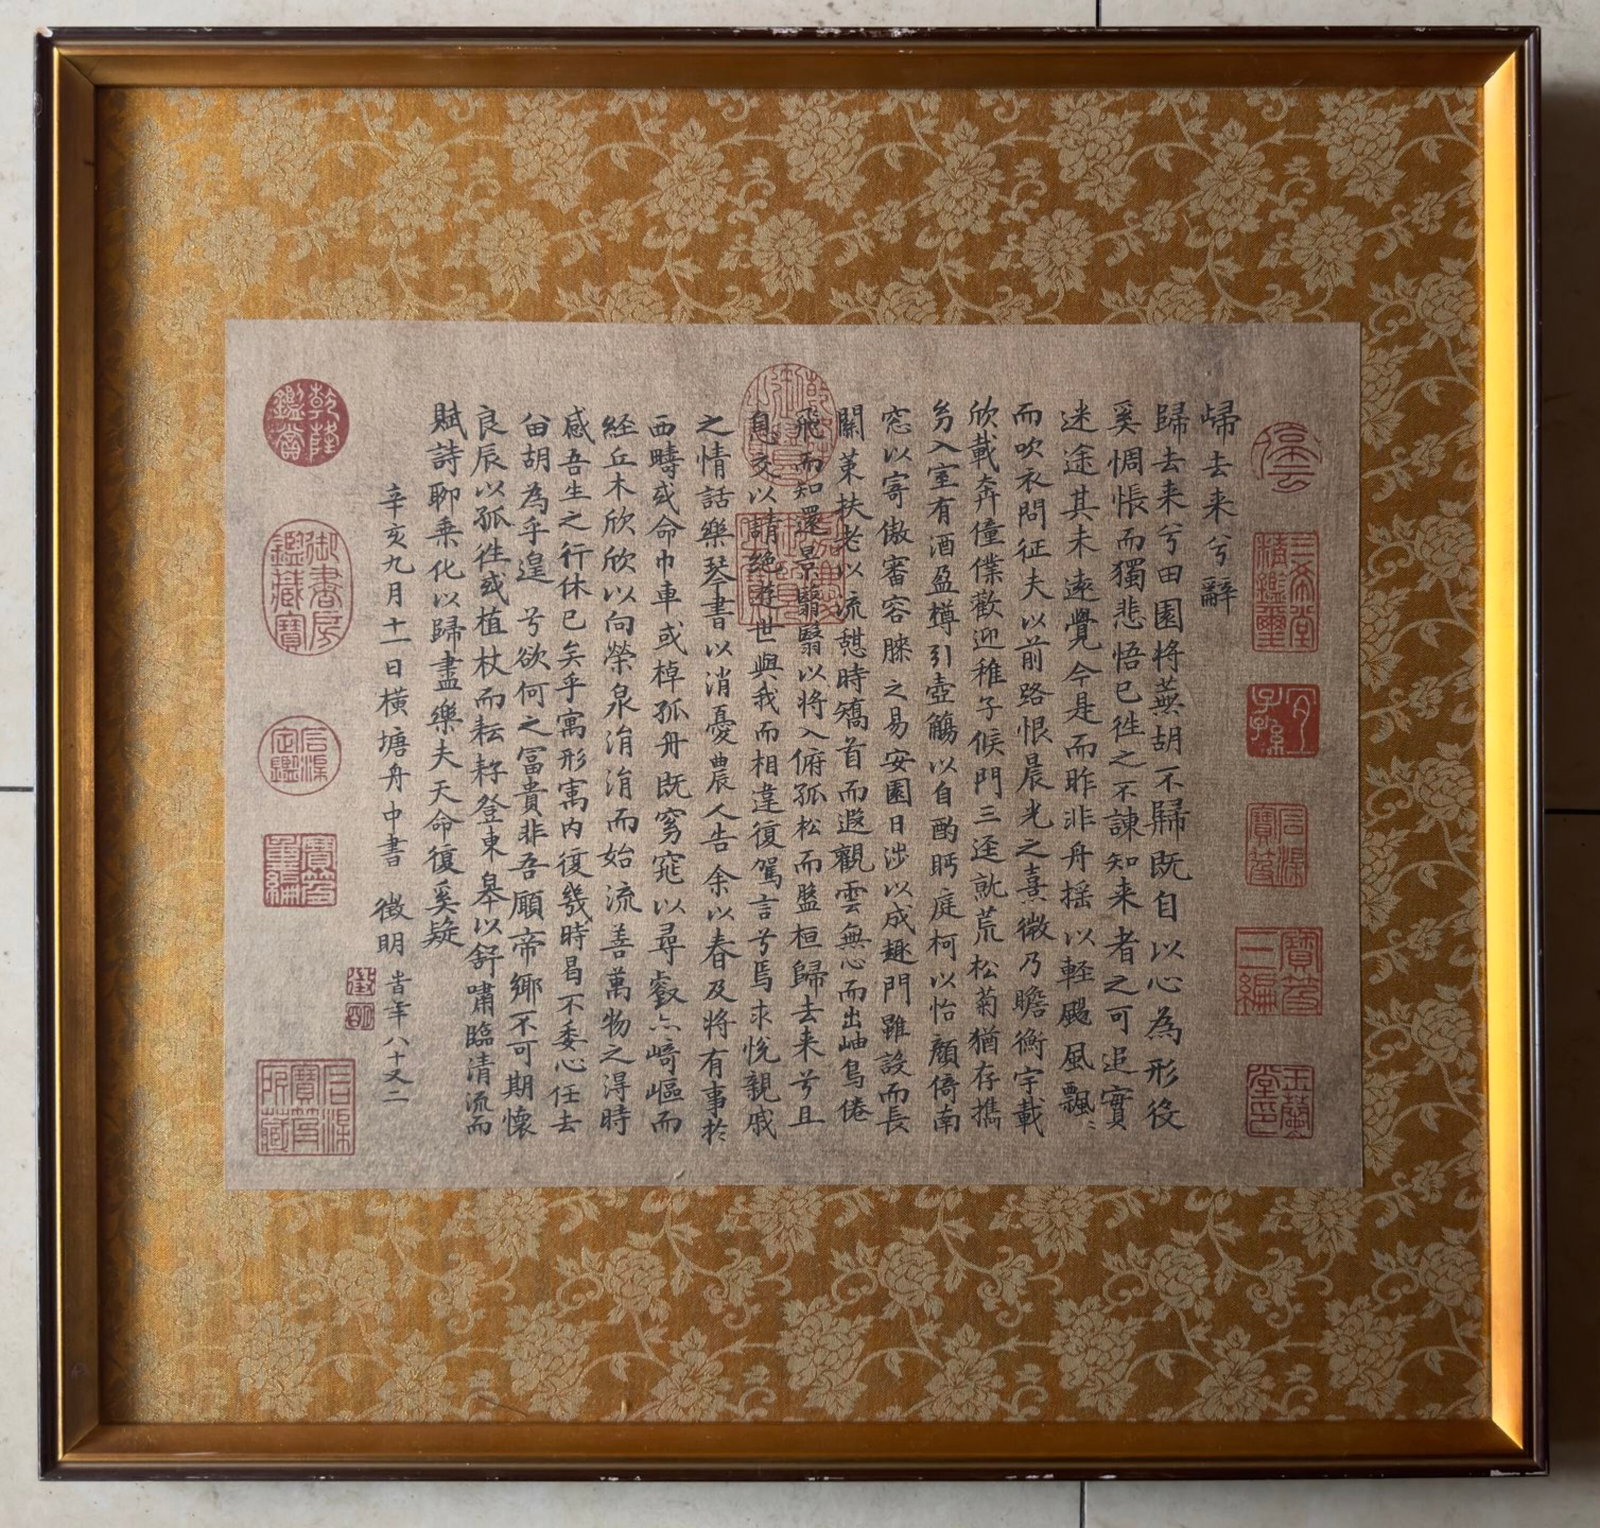 歸去来兮辭
歸去来兮田園将蕪胡不歸既自以心為形役
奚惆悵而獨悲悟已徃之不諫知来者之可追實
迷途其未遠覺今是而昨非舟揺以軽颺風飄〻
而吹衣問征夫以前路恨晨光之熹微乃瞻衡宇載
欣載奔僮僕歡迎稚子候門三逕就荒松菊猶存攜
幼入室有酒盈樽引壺觴以自酌眄庭柯以怡顔倚南
窓以寄傲審容膝之易安園日涉以成趣門雖設而長
關策扶老以流憩時矯首而遐觀雲無心而出岫鳥倦
飛而知還景翳翳以将入俯孤松而盤桓歸去来兮且
息交以請絶遊世與我而相違復駕言兮焉求悅親戚
之情話樂琴書以消憂農人告余以春及将有事扵
西疇或命巾車或棹孤舟既窮窕以尋壑亦崎嶇而
経丘木欣欣以向榮泉涓涓而始流善萬物之淂時
感吾生之行休已矣乎寓形寓内復幾時曷不委心任去
留胡為乎遑兮欲何之冨貴非吾願帝鄉不可期懷
良辰以孤徃或植杖而耘耔登東皋以舒嘯臨清流而
賦詩聊乗化以歸盡樂夫天命復奚疑
辛亥九月十一日横塘舟中書 徴明 旹年八十又二
乾隆鑑賞
御書房鑑藏寶
石渠定鑑
寶笈重編
石渠寶笈所藏
三希堂精鑑璽
宜子孫
石渠寶笈
寶笈三編
玉蘭堂印